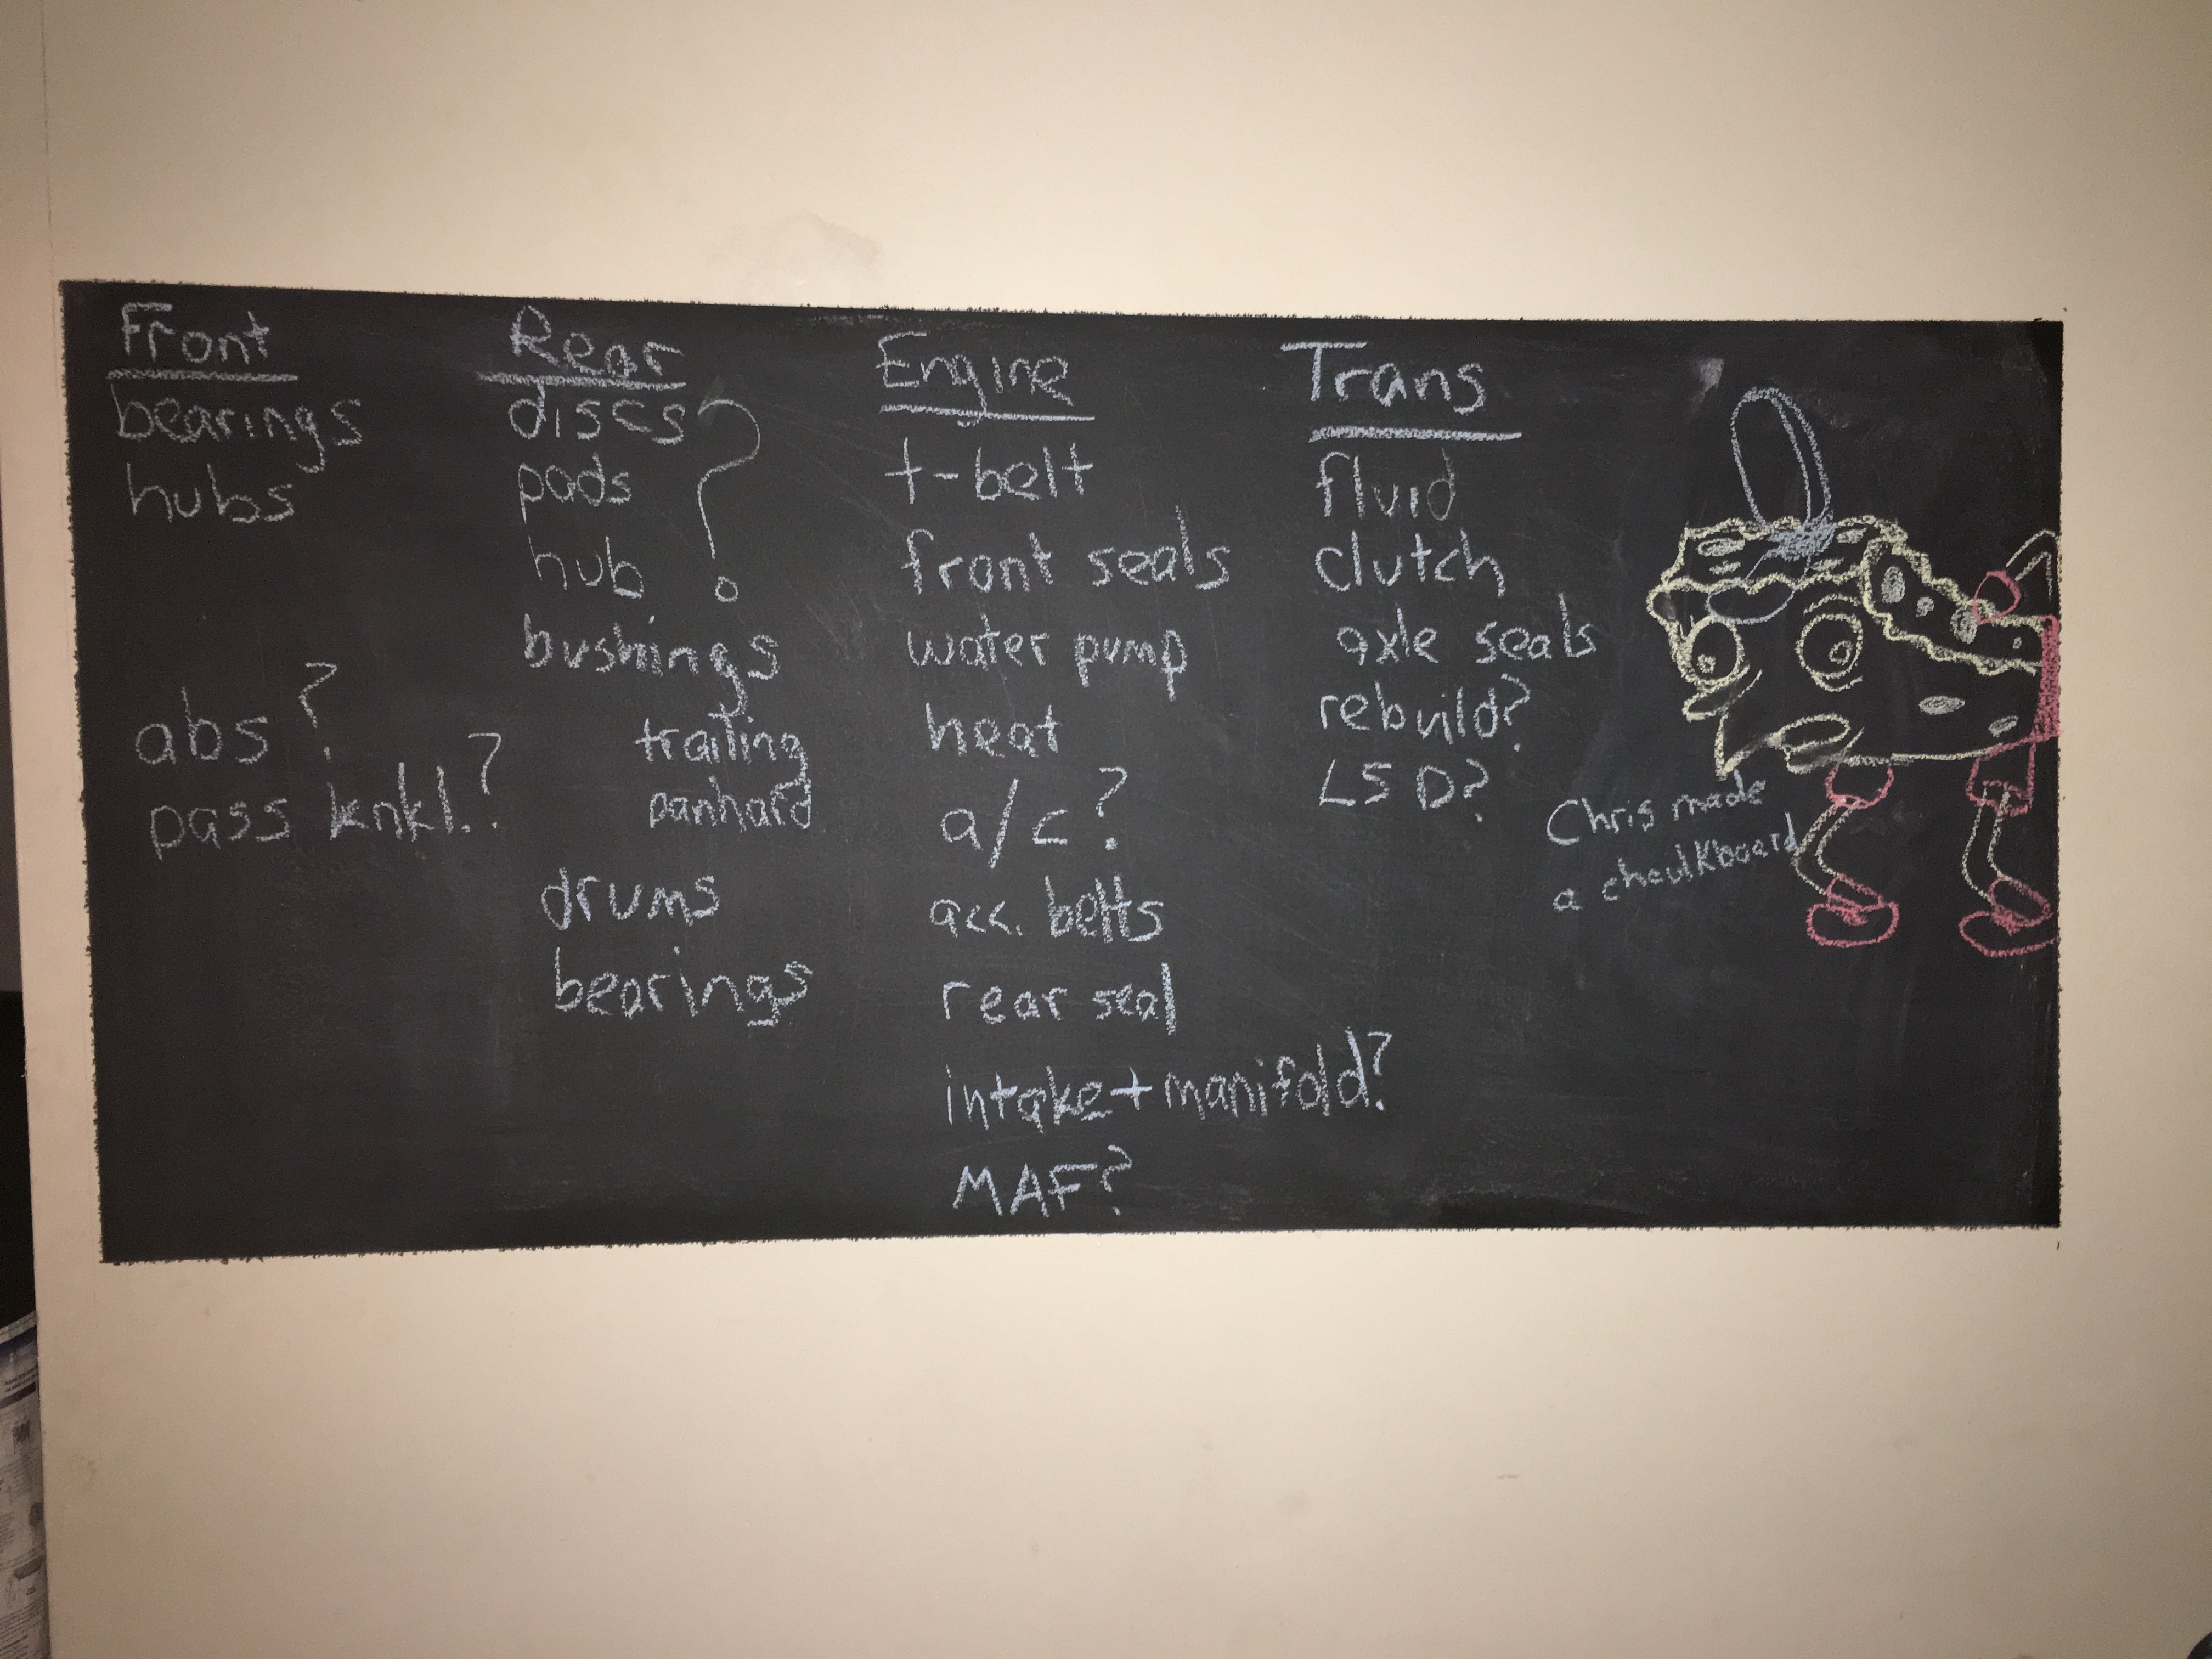 Front
bearings
hubs
abs?
pass knkl.?
Rear
discs ?
pads
hub
bushings
trailing
panhard
drums
bearings
Engine
t-belt
front seals
water pump
heat
a/c?
acc. belts
rear seal
intake + manifold?
MAF?
Trans
fluid
clutch
axle seals
rebuild?
LSD?
Chris made
a chaulkboard